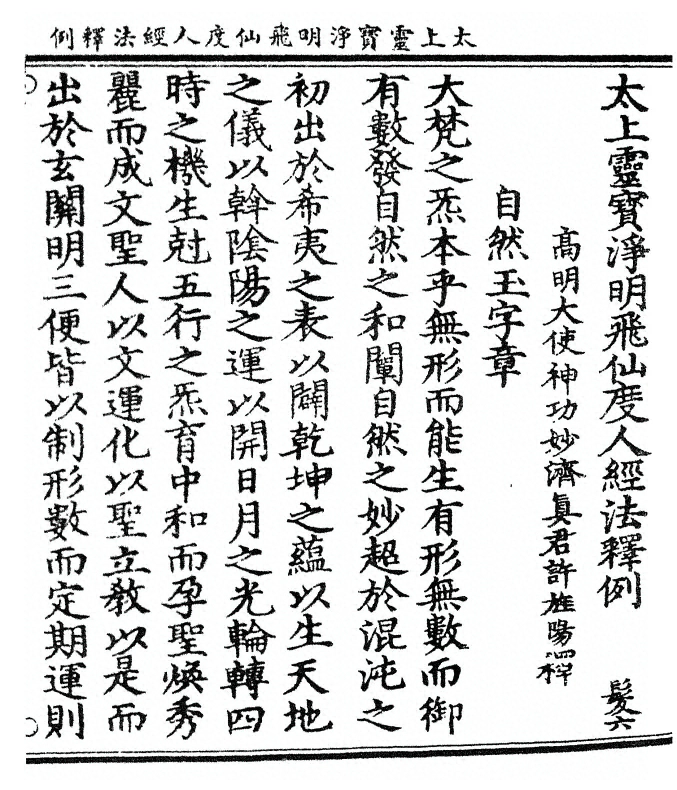 太上靈寶淨明飛仙度人經法釋例
太上靈寶淨明飛仙度人經法釋例
髮六
高明大使神功妙濟眞君許旌陽釋
自然玉字章
大梵之炁本乎無形而能生有形無數而御
有數發自然之和闡自然之妙超於混沌之
初出於希夷之表以闢乾坤之蘊以生天地
之儀以斡陰陽之運以開日月之光輪轉四
時之機生尅五行之炁育中和而孕聖煥秀
麗而成文聖人以文運化以聖立教以是而
出於玄關明三便皆以制形數而定期運則